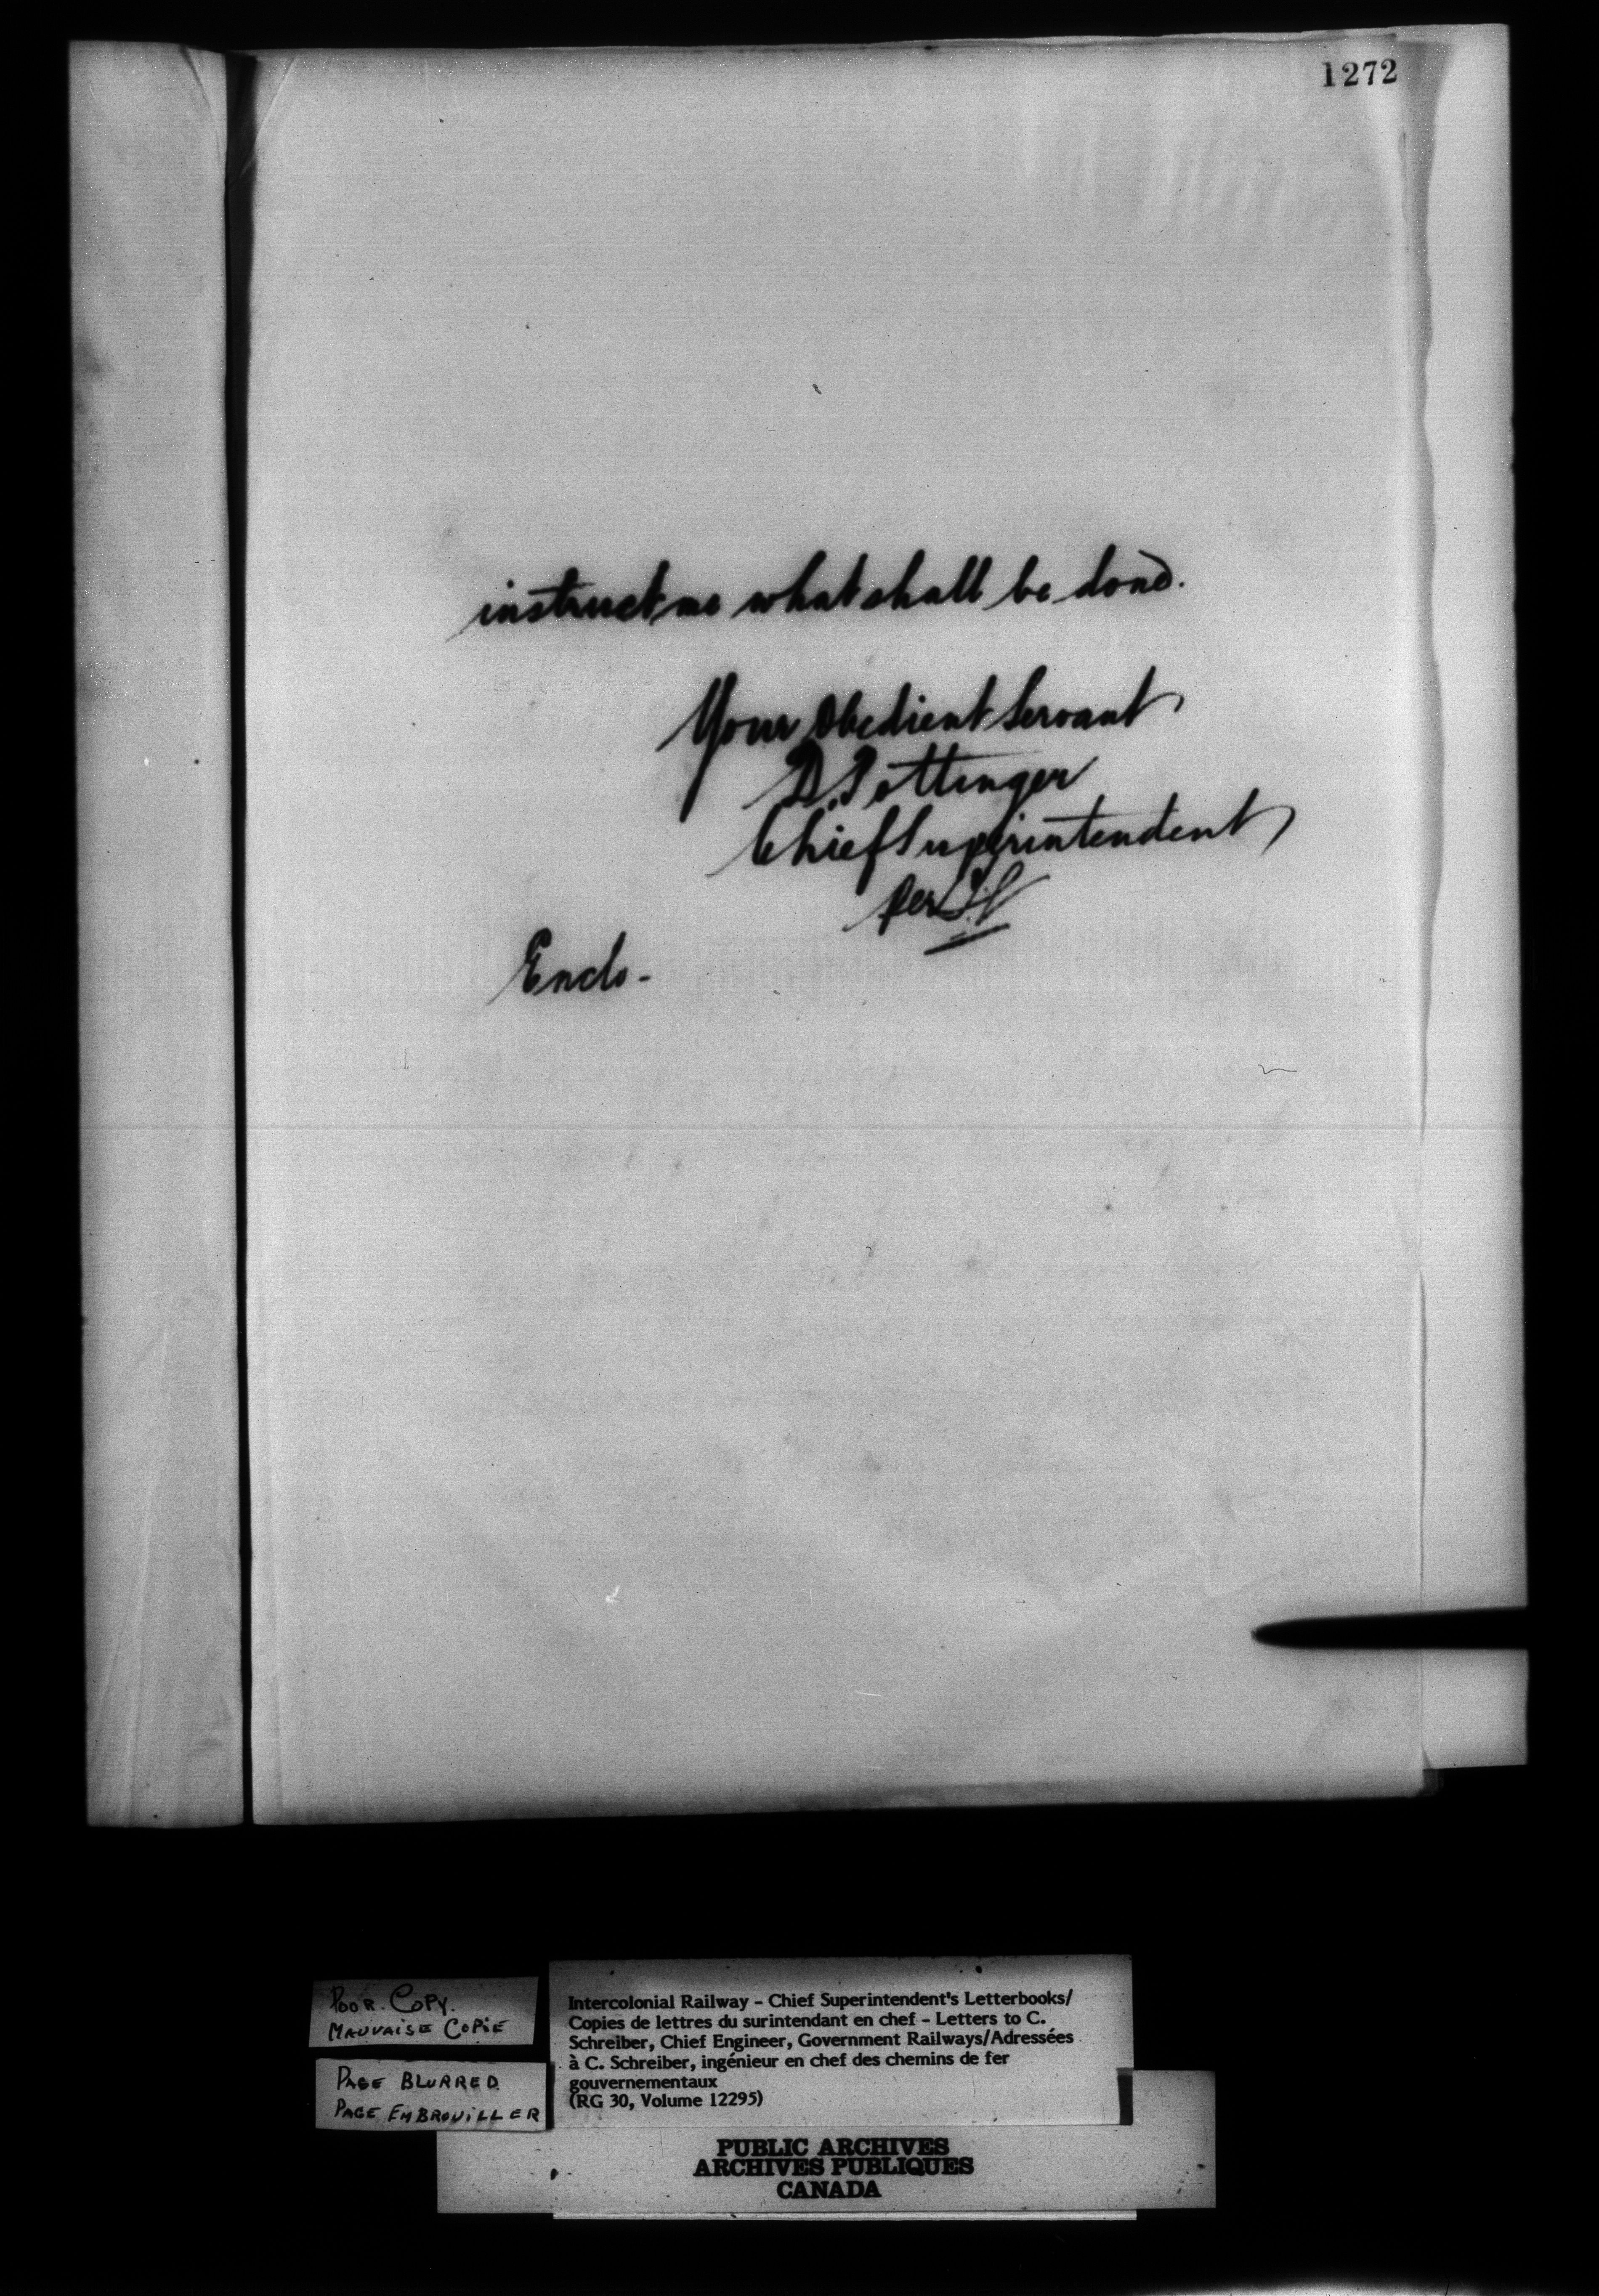 1272
instruct me what shall be done.
Your Obedient Servant
D. Pottinger
Chief Superintendent
Per
Enclo-
POOR COPY.
MAUVAISE COPIE
PAGE BLURRED
PAGE EMBROUILLER
Intercolonial Railway - Chief Superintendent's Letterbooks/
Copies de lettres du surintendant en chef - Letters to C.
Schreiber, Chief Engineer, Government Railways/Adressées
à C. Schreiber, ingénieur en chef des chemins de fer
gouvernementaux
(RG 30, Volume 12295)
PUBLIC ARCHIVES
ARCHIVES PUBLIQUES
CANADA